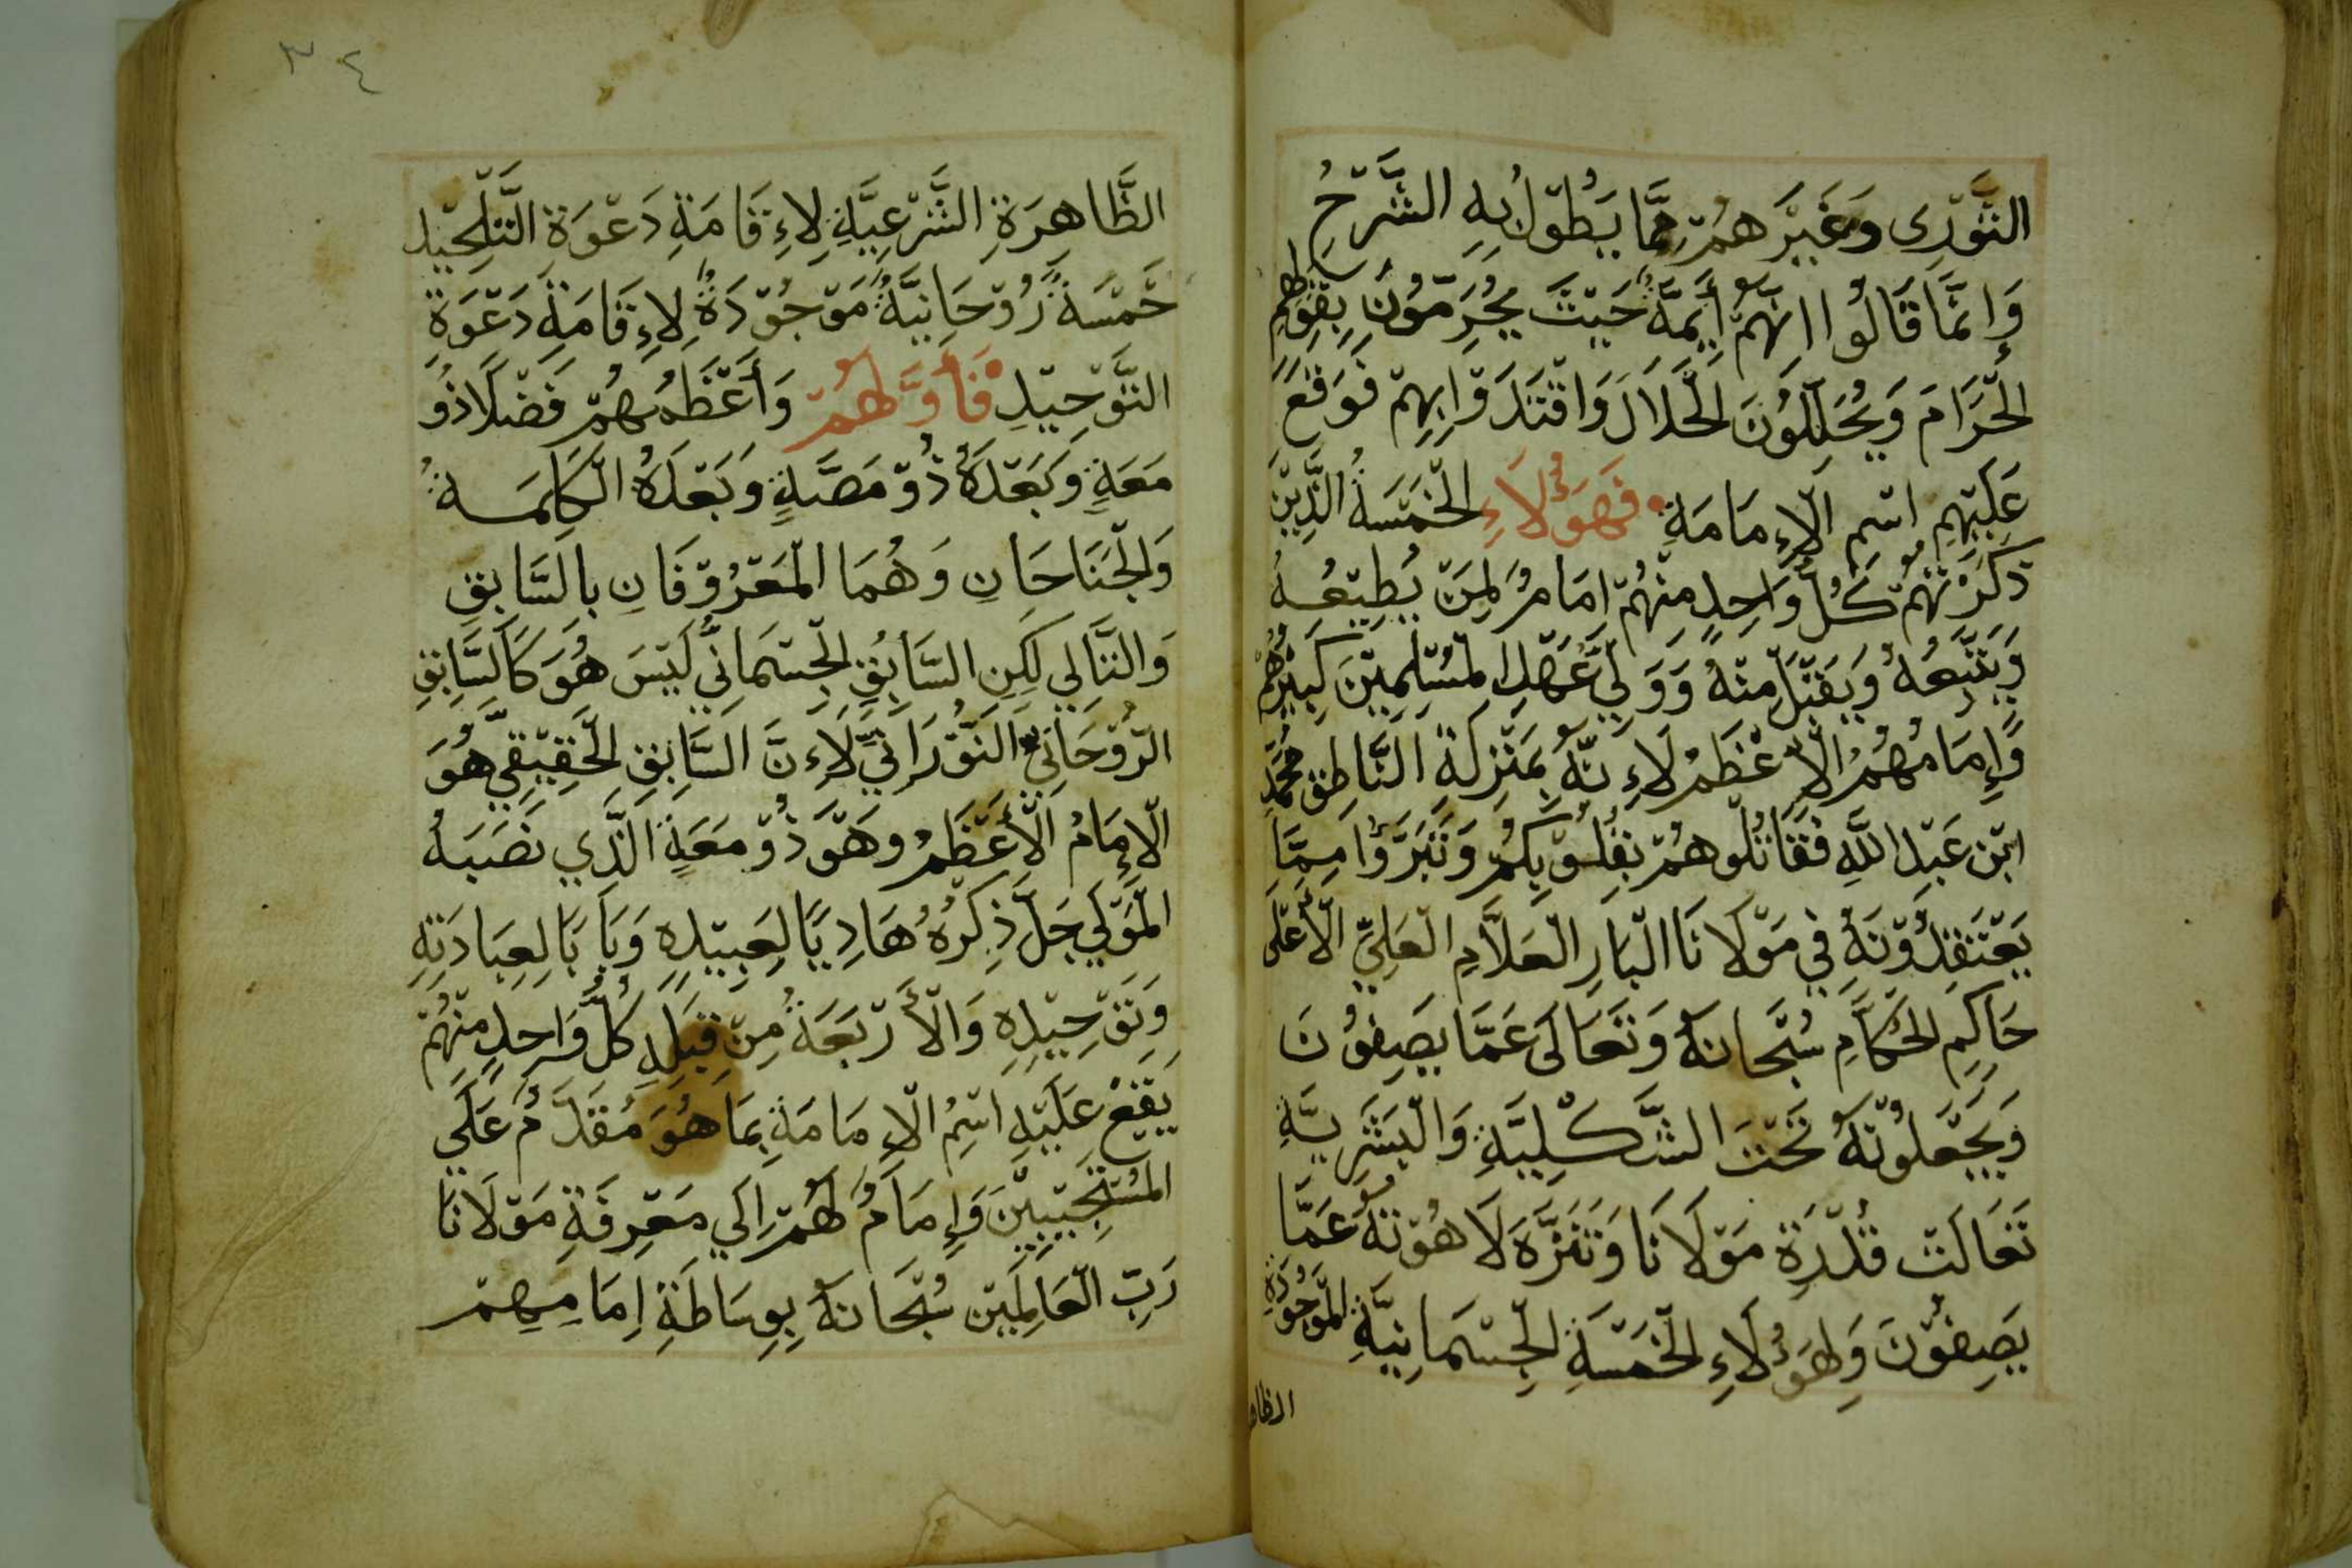 الثَّوْرِي وَغَيْرَهُمْ مِمَّا يَطُوْلُ بِهِ الشَّرْحُ
وَإِنَّمَا قَالُوا انَّهُمْ أَئِمَّةُ حَيْثُ يُحَرِّمُوْنَ بِقَوْلِهِمِ
الْحَرَامَ وَيُحَلِّلُوْنَ الْحَلَالَ وَاقْتَدَوْا بِهِمْ فَوَقَعَ
عَلَيْهِمِ اسْمِ الْإِمَامَةِ فَهَؤُلَاءِ الْخَمْسَةُ الَّذِيْنَ
ذَكَرْتُهُمْ كُلُّ وَاحِدٍ مِنْهُمْ اِمَامٌ لِمَنْ يُطِيْعُهُ
وَيَتَّبِعُهُ وَيَقْبَلُ مِنْهُ وَوَلِيُّ عَهْدِ الْمُسْلِمِيْنَ كَبِيْرُهُمْ
وَإِمَامُهُمُ الْأَعْظَمُ لِأَنَّهُ بِمَنْزِلَةِ النَّاطِقِ مُحَمَّدِ
ابْنِ عَبْدِ اللَّهِ فَقَاتِلُوهُمْ بِقُلُوْبِكُمْ وَتَبَرَّؤُا مِمَّا
يَعْتَقِدُوْنَهُ فِي مَوْلَانَا الْبَارِ الْعَلَّامِ الْعَلِيِّ الْأَعْلَى
حَاكِمِ الْحُكَّامِ سُبْحَانَهُ وَتَعَالَى عَمَّا يَصِفُوْنَ
وَيَجْعَلُوْنَهُ تَحْتَ الشَّكْلِيَّةِ وَالْبَشَرِيَّةِ
تَعَالَتْ قُدْرَةِ مَوْلَانَا وَتَنَزَّهَ لَاهُوْتُهُ عَمَّا
يَصِفُوْنَ وَلِهَؤُلَاءِ الْخَمْسَةِ الْجِسْمَانِيَّةِ الْمَوْجُوْدَةِ
الظا
٣٤
الظَّاهِرَةِ الشَّرْعِيَّةِ لِإِقَامَةِ دَعْوَةِ التَّلْحِيْدِ
خَمْسَةٌ رُوْحَانِيَّةٌ مَوْجُوْدَةٌ لِإِقَامَةِ دَعْوَةِ
التَّوْحِيْدِ فَأَوَّلُهُمْ وَأَعْظَمُهُمْ فَضْلًا ذُو
مَعَةٍ وَبَعْدَهُ ذُوْ مَصَّةٍ وَبَعْدَهُ الْكَلِمَةُ
وَالْجَنَاحَانِ وَهُمَا الْمَعْرُوْفَانِ بِالسَّابِقِ
وَالتَّالِي لَكِنِ السَّابِقِ الْجِسْمَانِيُّ لَيْسَ هُوَ كَالسَّابِقِ
الرُّوْحَانِيِّ النَّوْرَانِيِّ لِأَنَّ السَّابِقِ الْحَقِيْقِي هُوَ
الْإِمَامُ الْأَعْظَمُ وهَوَ ذُوْ مَعَةٍ الَّذِي نَصَبَهُ
الْمَوْلَى جَلَّ ذِكْرُهُ هَادِيًا لِعَبِيْدِهِ وَبَابًا لِعِبَادَتِهِ
وَتَوْحِيْدِهِ وَالْأَرْبَعَةُ مِنْ قِبَلِهِ كُلُّ وَاحِدٍ مِنْهُمْ
يَقَعُ عَلَيْهِ اسْمُ الْإِمَامَةِ بِمَا هُوَ مُقَدَّمٌ عَلَى
الْمُسْتَجِيْبِيْنَ وَإِمَامٌ لَهُمْ اِلَى مَعْرِفَةِ مَوْلَانَا
رَبِّ الْعَالَمِيْنَ سُبْحَانَهُ بِوِسَاطَةِ اِمَامِهِمْ